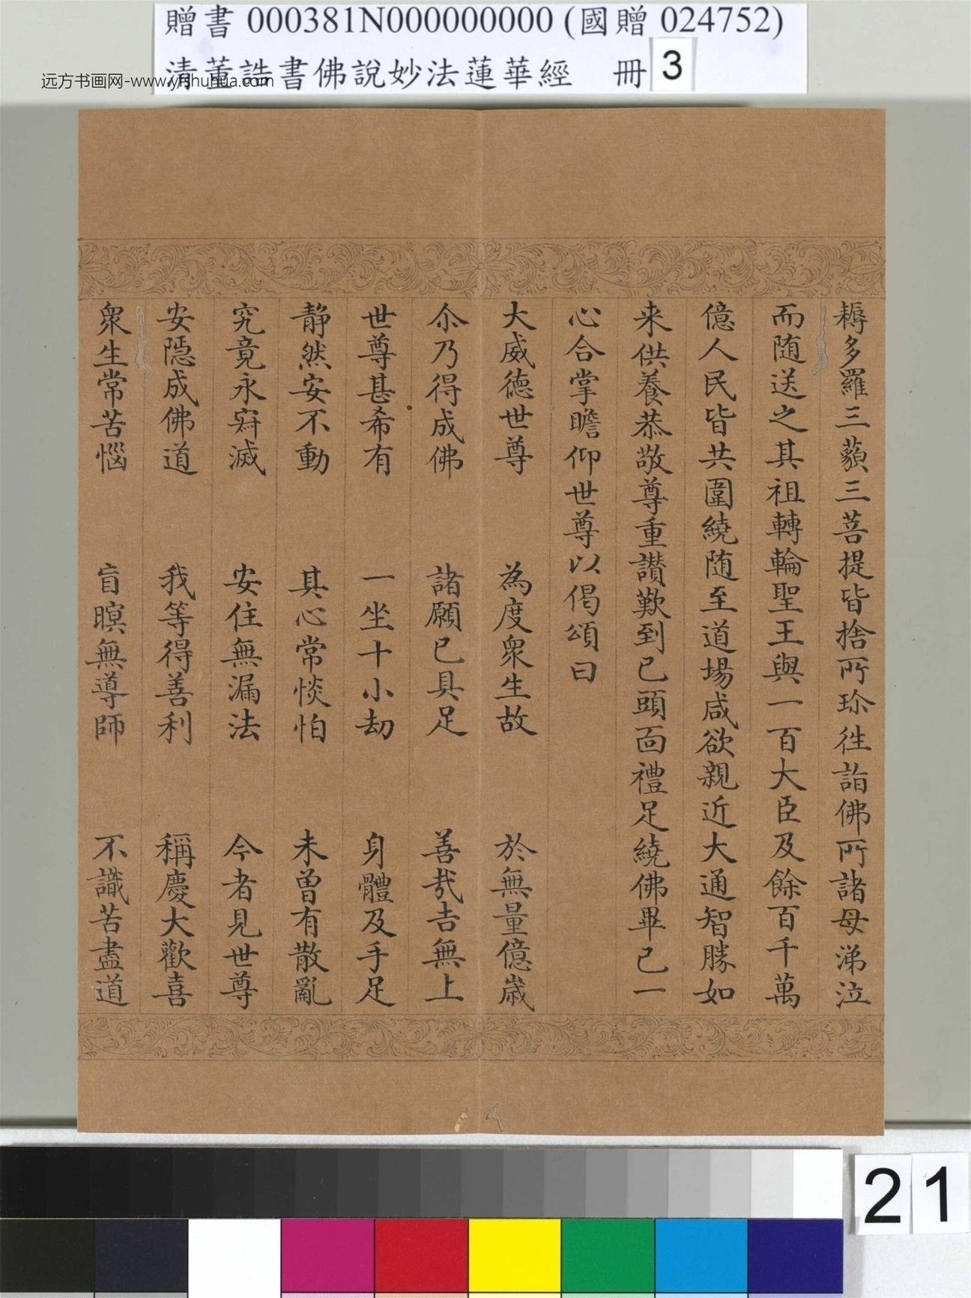 贈書 000381N000000000 (國贈 024752)
清董誥書佛說妙法蓮華經 冊 3
远方书画网-www.yfshuhua.com
耨多羅三藐三菩提皆捨所珎徃詣佛所諸母涕泣
而随送之其祖轉輪聖王與一百大臣及餘百千萬
億人民皆共圍繞随至道場咸欲親近大通智勝如
来供養恭敬尊重讚歎到已頭面禮足繞佛畢已一
心合掌瞻仰世尊以偈頌曰
大威德世尊 為度衆生故 於無量億歲
尒乃得成佛 諸願已具足 善哉吉無上
世尊甚希有 一坐十小劫 身體及手足
静然安不動 其心常惔怕 未曾有散亂
究竟永寂滅 安住無漏法 今者見世尊
安隱成佛道 我等得善利 稱慶大歡喜
衆生常苦惱 盲瞑無導師 不識苦盡道
21